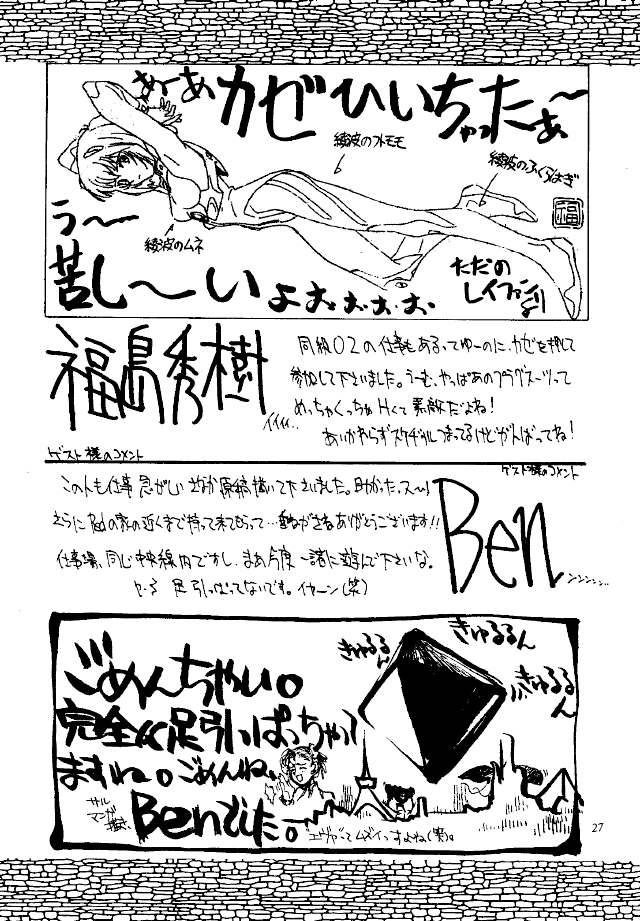 あーあ カゼひいちゃったぁ〜
綾波のフトモモ
綾波のふくらはぎ
福
う〜
綾波のムネ
苦し〜いよぉぉぉぉ
ただの
レイファンより
福島秀樹
イイイ...
同級02の仕事もあるってゆーのに、カゼを押して
参加して下さいました。うーむ、やっぱあのプラグスーツって
めっちゃくっちゃHくて素敵だよね!
あいかわらずスケジュールつまってるけどがんばってね!
ゲスト様のコメント
ゲスト様のコメント
この人も仕事忙がしい中原稿描いて下さいました。助かったっス〜!
さらにRedの家の近くまで持って来てもらって…重ねがさねありがとうございます!!
仕事場、同じ中央線内ですし、まあ今度一緒に遊んで下さいな。
P.S 足引っぱってないです。イヤーン(笑)
Ben
ンンンン...
ごめんちゃい。
完全に足引っぱっちゃって
ますね。ごめんね。
サル
マンガ
Benでした。
きゅるるん
きゅるるん
きゅるるん
"エヴァ"ってムズイっすよね(笑)。
27